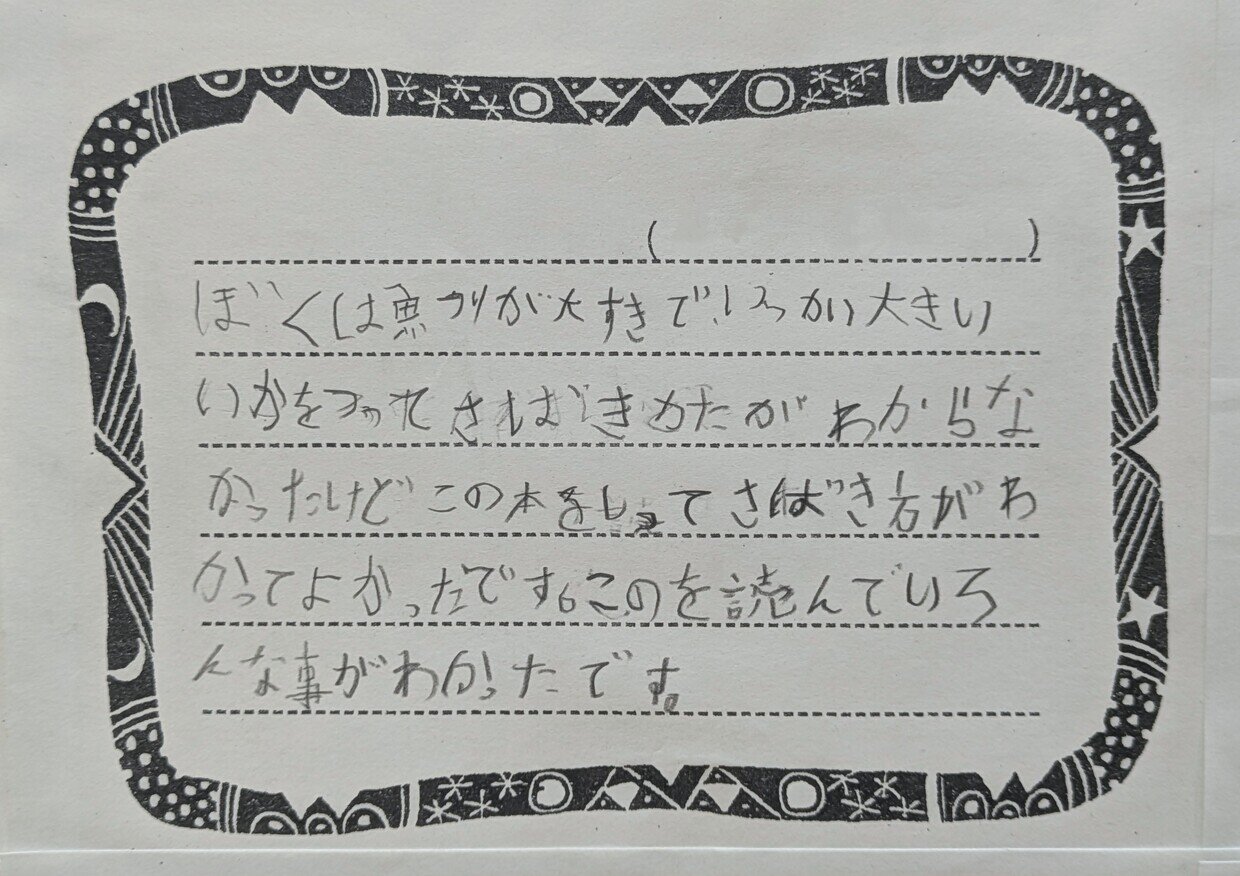 (　)
ぼくは魚つりが大すきで、いっかい大きい
いかをつってさばきかたがわからな
かったけどこの本をしって さばき方がわ
かってよかったです。このを読んでいろ
んな事がわかったです。